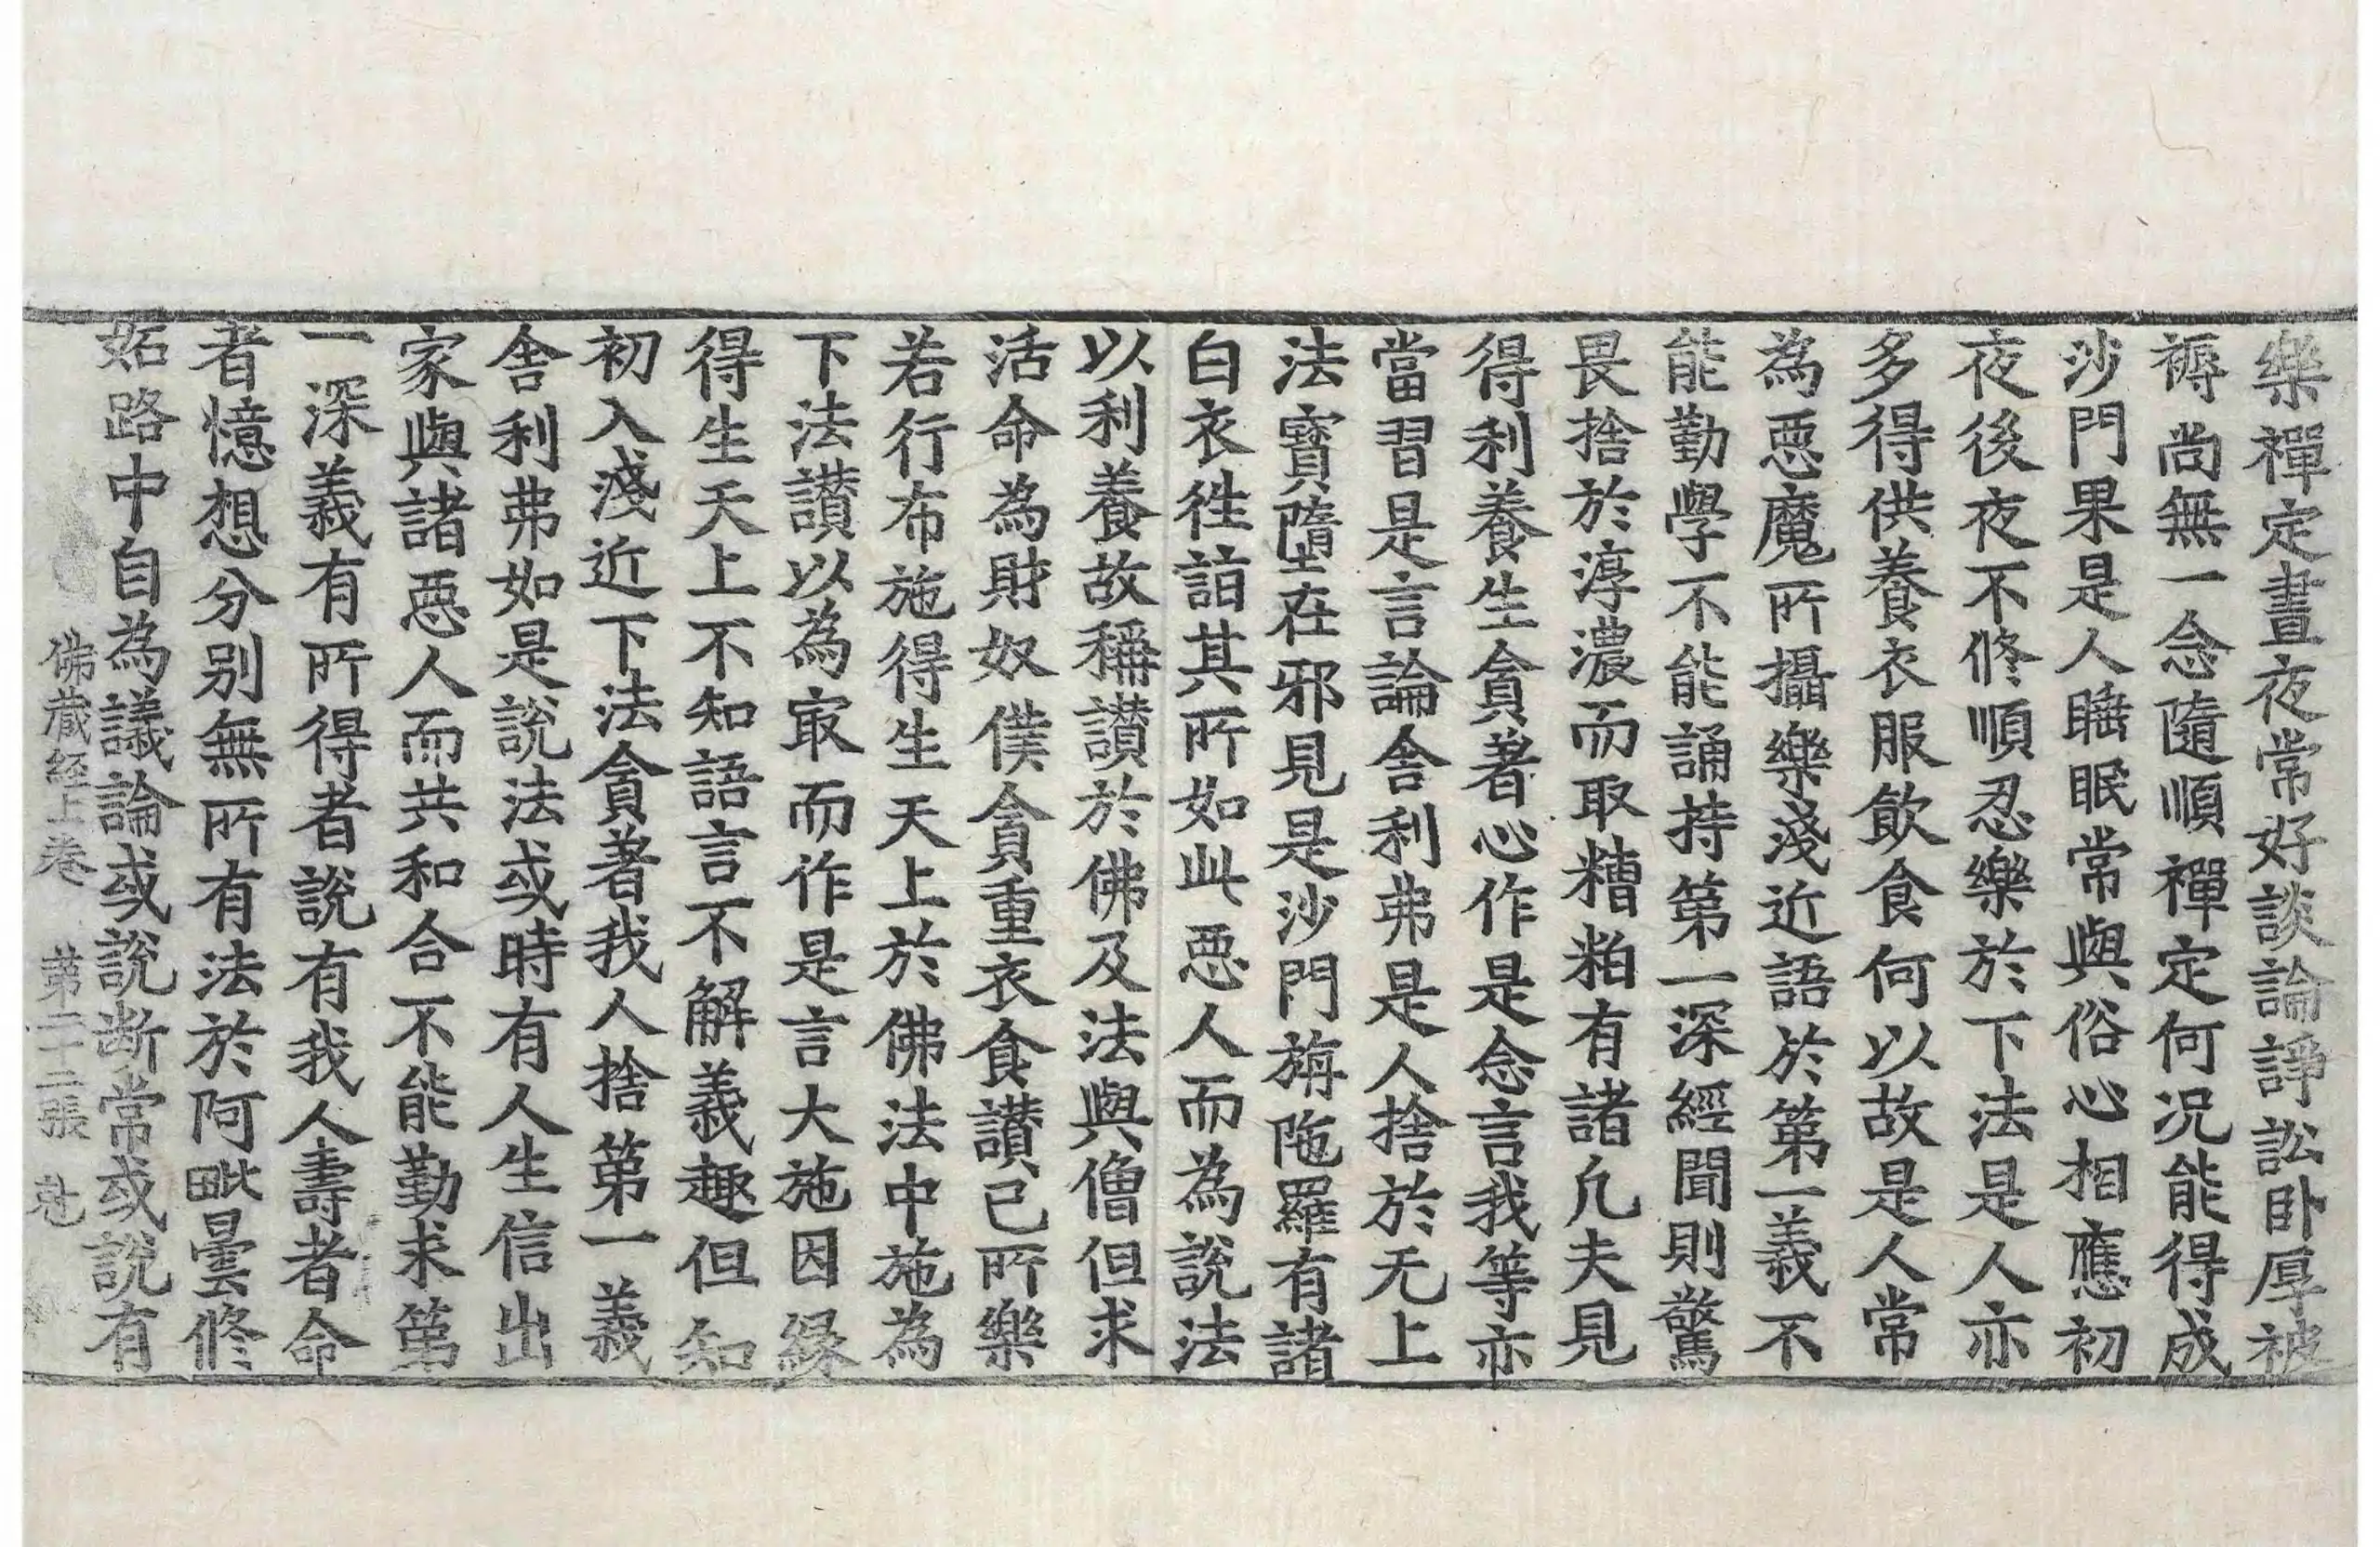 樂禪定晝夜常好談論諍訟卧厚被
褥尚無一念隨順禪定何况能得成
沙門果是人睡眠常與俗心相應初
夜後夜不修順忍樂於下法是人亦
多得供養衣服飲食何以故是人常
為惡魔所攝樂淺近語於第一義不
能勤學不能誦持第一深經聞則驚
畏捨於淳濃而取糟粕有諸凡夫見
得利養生貪著心作是念言我等亦
當習是言論舍利弗是人捨於无上
法寶墮在邪見是沙門旃陁羅有諸
白衣徃詣其所如此惡人而為說法
以利養故稱讃於佛及法與僧但求
活命為財奴僕貪重衣食讃己所樂
若行布施得生天上於佛法中施為
下法讃以為㝡而作是言大施因緣
得生天上不知語言不解義趣但知
初入淺近下法貪著我人捨第一義
舍利弗如是說法或時有人生信出
家與諸惡人而共和合不能勤求第
一深義有所得者說有我人壽者命
者憶想分別無所有法於阿毗曇修
妬路中自為議論或說断常或說有
佛藏経上卷 第二十二張 尅